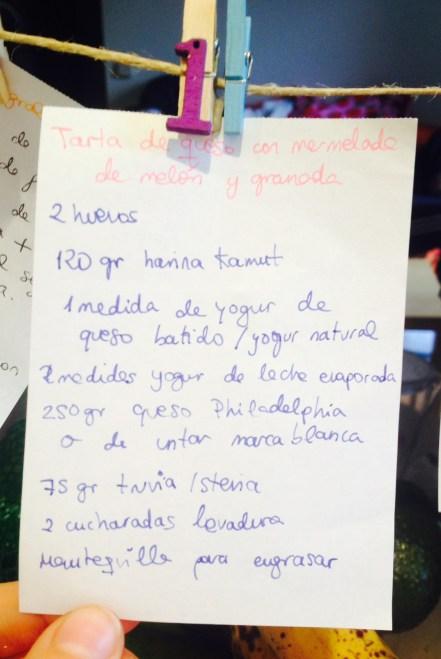 1
Tarta de queso con mermelada
de melón y granada
2 huevos
120 gr harina Kamut
1 medida de yogur de
queso batido / yogur natural
2 medides yogur de leche evaporada
250 gr queso Philadelphia
o de untar marca blanca
75 gr truvia / stevia
2 cucharadas levadura
Mantequilla para engrasar